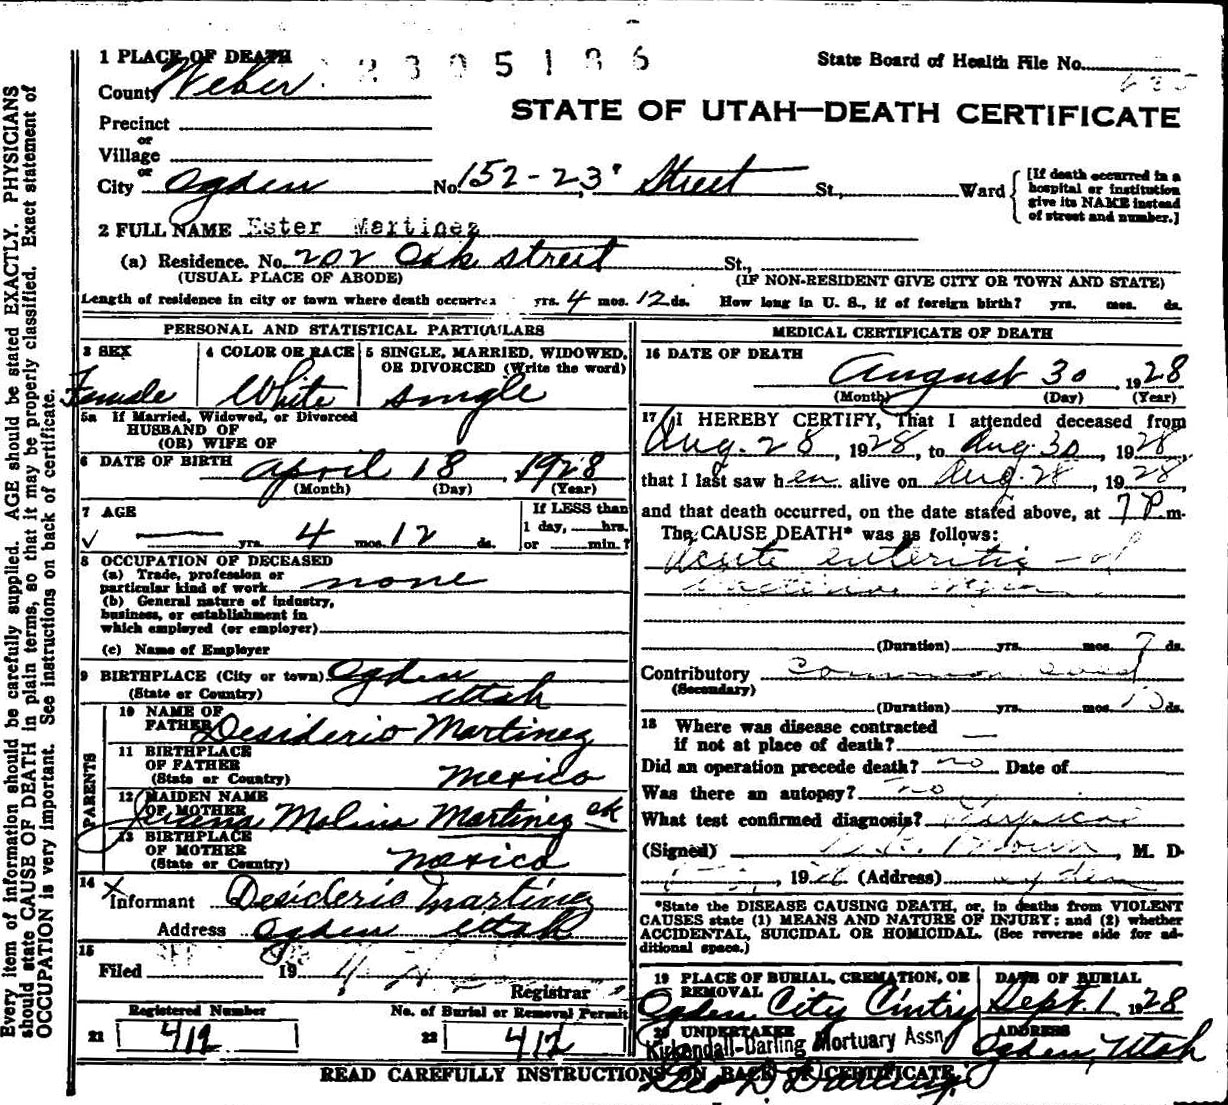 Every item of information should be carefully supplied. AGE should be stated EXACTLY. PHYSICIANS
should state CAUSE OF DEATH in plain terms, so that it may be properly classified. Exact statement of
OCCUPATION is very important. See instructions on back of certificate.
2305136
State Board of Health File No.
STATE OF UTAH—DEATH CERTIFICATE
1 PLACE OF DEATH
County Weber
Precinct
or
Village
or
City Ogden No. 152-23 Street St., Ward
[If death occurred in a
hospital or institution
give its NAME instead
of street and number.]
2 FULL NAME Ester Martinez
(a) Residence. No. 202 Oak street St.,
(USUAL PLACE OF ABODE) (IF NON-RESIDENT GIVE CITY OR TOWN AND STATE)
Length of residence in city or town where death occurred yrs. 4 mos. 12 ds. How long in U. S., if of foreign birth? yrs. mos. ds.
PERSONAL AND STATISTICAL PARTICULARS
3 SEX
Female
4 COLOR OR RACE
White
5 SINGLE, MARRIED, WIDOWED,
OR DIVORCED (Write the word)
single
5a If Married, Widowed, or Divorced
HUSBAND OF
(OR) WIFE OF
6 DATE OF BIRTH April 18, 1928
(Month) (Day) (Year)
7 AGE
yrs. 4 mos. 12 ds.
If LESS than
1 day, hrs.
or min.?
8 OCCUPATION OF DECEASED
(a) Trade, profession or
particular kind of work none
(b) General nature of industry,
business, or establishment in
which employed (or employer)
(c) Name of Employer
9 BIRTHPLACE (City or town) Ogden
(State or Country) Utah
PARENTS
10 NAME OF
FATHER Desiderio Martinez
11 BIRTHPLACE
OF FATHER
(State or Country) Mexico
12 MAIDEN NAME
OF MOTHER Molina Martinez ok
13 BIRTHPLACE
OF MOTHER
(State or Country) Mexico
14 X
Informant Desiderio Martinez
Address Ogden Utah
15
Filed 19
Registrar
Registered Number
21 412
No. of Burial or Removal Permit
22 412
MEDICAL CERTIFICATE OF DEATH
16 DATE OF DEATH
August 30, 1928
(Month) (Day) (Year)
17 I HEREBY CERTIFY, That I attended deceased from
Aug. 28, 1928, to Aug. 30, 1928,
that I last saw her alive on Aug. 28, 1928,
and that death occurred, on the date stated above, at 7 P.m.
The CAUSE DEATH* was as follows:
Acute enteritis
(Duration) yrs. mos. 7 ds.
Contributory Common
(Secondary)
(Duration) yrs. mos. ds.
18 Where was disease contracted
if not at place of death?
Did an operation precede death? no Date of
Was there an autopsy? no
What test confirmed diagnosis?
(Signed) , M. D.
, 19 (Address) Ogden
*State the DISEASE CAUSING DEATH, or, in deaths from VIOLENT
CAUSES state (1) MEANS AND NATURE OF INJURY; and (2) whether
ACCIDENTAL, SUICIDAL OR HOMICIDAL. (See reverse side for ad-
ditional space.)
19 PLACE OF BURIAL, CREMATION, OR
REMOVAL
Ogden City
DATE OF BURIAL
Sept. 1 1928
20 UNDERTAKER
Kirkendall-Darling Mortuary Assn
Geo D Darling
ADDRESS
Ogden, Utah
READ CAREFULLY INSTRUCTIONS ON BACK OF CERTIFICATE.